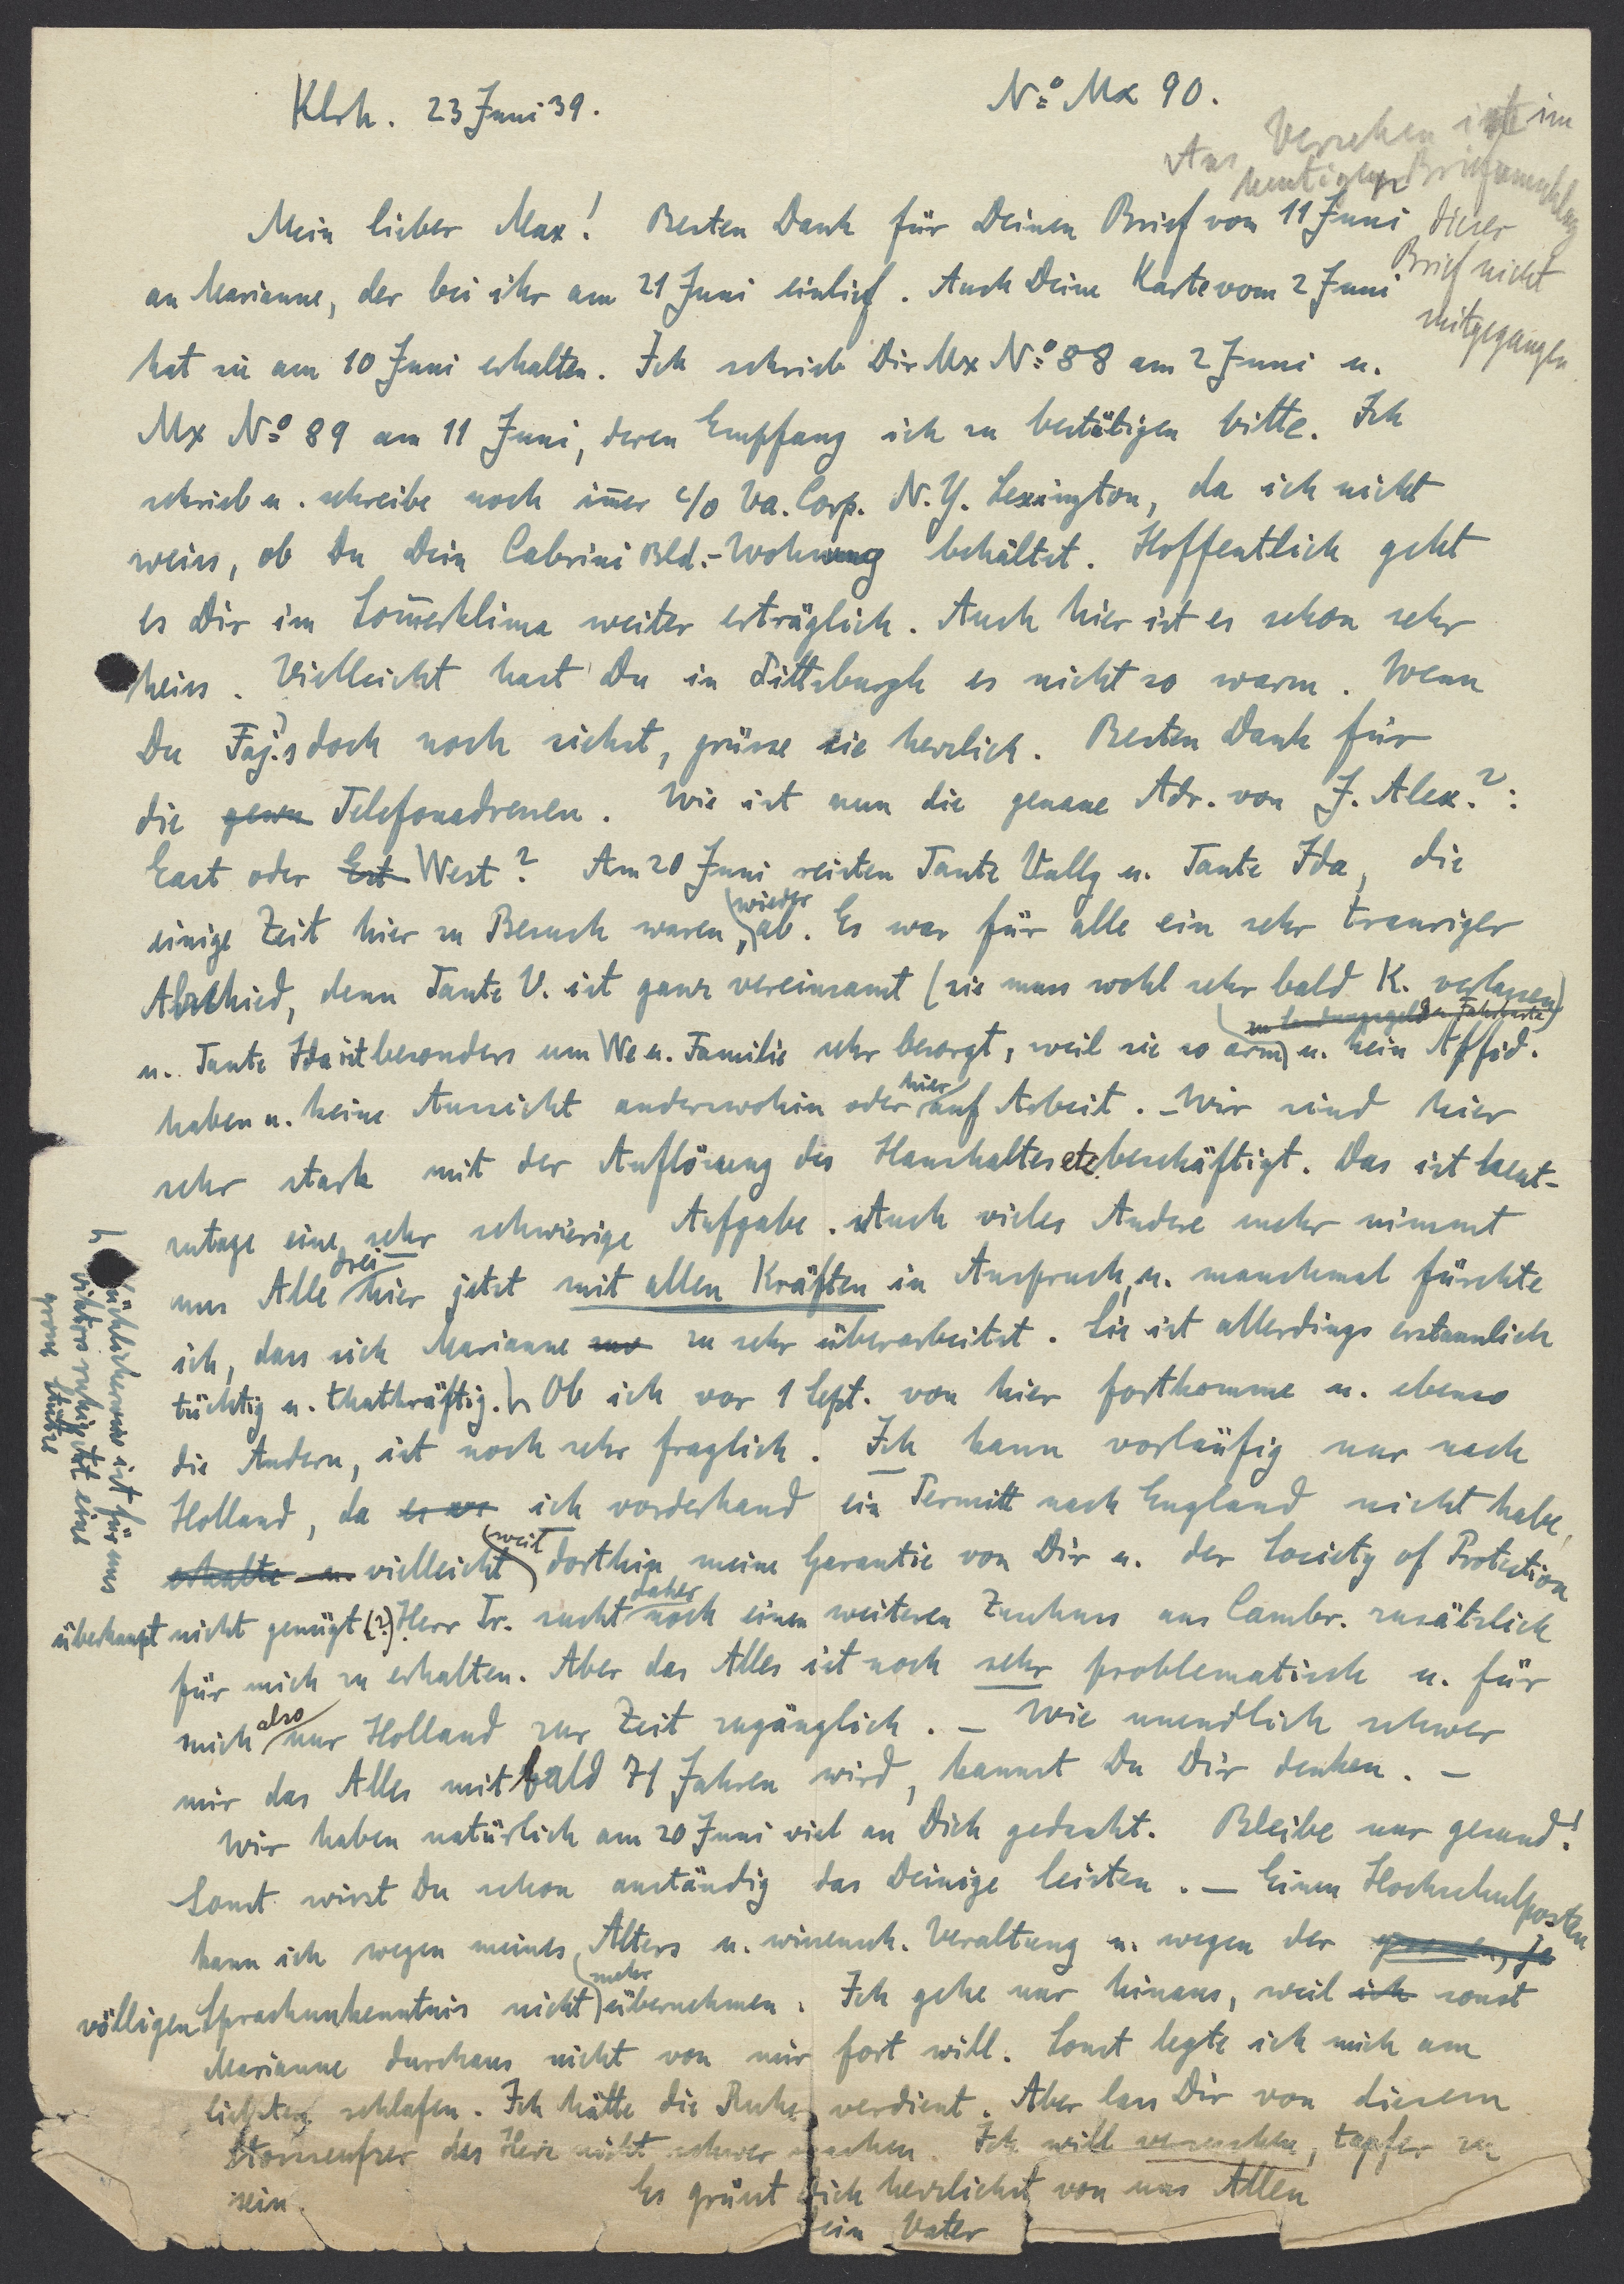 Klrh. 23 Juni 39.
No Mx 90.
Aus Versehen ist im
heutigen Briefumschlag
dieser
Brief nicht
mitgegangen
Mein lieber Max! Besten Dank für Deinen Brief vom 11 Juni
an Marianne, der bei ihr am 21 Juni einlief. Auch Deine Karte vom 2 Juni
hat sie am 10 Juni erhalten. Ich schrieb Dir Mx No 88 am 2 Juni u.
Mx No 89 am 11 Juni, deren Empfang ich zu bestätigen bitte. Ich
schrieb u. schreibe noch im̄er c/o Va. Corp. N.Y. Lexington, da ich nicht
weiss, ob Du Dein Cabrini Bld.-Wohnung behältst. Hoffentlich geht
es Dir im Som̄erklima weiter erträglich. Auch hier ist es schon sehr
heiss. Vielleicht hast Du in Pittsburgh es nicht so warm. Wenn
Du Faj.'s doch noch siehst, grüsse sie herzlich. Besten Dank für
die Telefonadressen. Wie ist nun die genaue Adr. von J. Alex.?:
East oder Est West? Am 20 Juni reisten Tante Vally u. Tante Ida, die
einige Zeit hier zu Besuch waren, wieder ab. Es war für alle ein sehr trauriger
Abschied, denn Tante V. ist ganz vereinsamt (sie muss wohl sehr bald K. verlassen)
u. Tante Ida ist besonders um We u. Familie sehr besorgt, weil sie so arm u. kein Affid.
haben u. keine Aussicht anderswohin oder hier auf Arbeit. – Wir sind hier
sehr stark mit der Auflösung des Haushaltes etc. beschäftigt. Das ist heut-
zutage eine sehr schwierige Aufgabe. Auch vieles Andere mehr nimmt
uns Alle drei hier jetzt mit allen Kräften in Anspruch, u. manchmal fürchte
ich, dass sich Marianne zu sehr überarbeitet. Sie ist allerdings erstaunlich
tüchtig u. thatkräftig. Ob ich vor 1 Sept. von hier fortkomme u. ebenso
die Andern, ist noch sehr fraglich. Ich kann vorläufig nur nach
Holland, da ich vorderhand ein Permitt nach England nicht habe,
erhalte u. vielleicht weit dorthin meine Garantie von Dir u. der Society of Protection
überhaupt nicht genügt (?) Herr Tr. sucht daher noch einen weiteren Zuschuss aus Cambr. zusätzlich
für mich zu erhalten. Aber das Alles ist noch sehr problematisch u. für
mich also nur Holland zur Zeit zugänglich. – Wie unendlich schwer
mir das Alles mit bald 71 Jahren wird, kannst Du Dir denken. –
Wir haben natürlich am 20 Juni viel an Dich gedacht. Bleibe nur gesund!
Sonst wirst Du schon anständig das Deinige leisten. – Einen Hochschulposten
kann ich wegen meines Alters u. wissensch. Veraltung u. wegen der
völligen Sprachunkenntnis nicht mehr übernehmen. Ich gehe nur hinaus, weil ich sonst
Marianne durchaus nicht von mir fort will. Sonst legte ich mich am
liebsten schlafen. Ich hätte die Ruhe verdient. Aber lass Dir von diesem
Stossseufzer das Herz nicht schwer machen. Ich will versuchen, tapfer zu
sein. Es grüsst Dich herzlichst von uns Allen
Dein Vater
ist für uns
eine
grosse Stütze